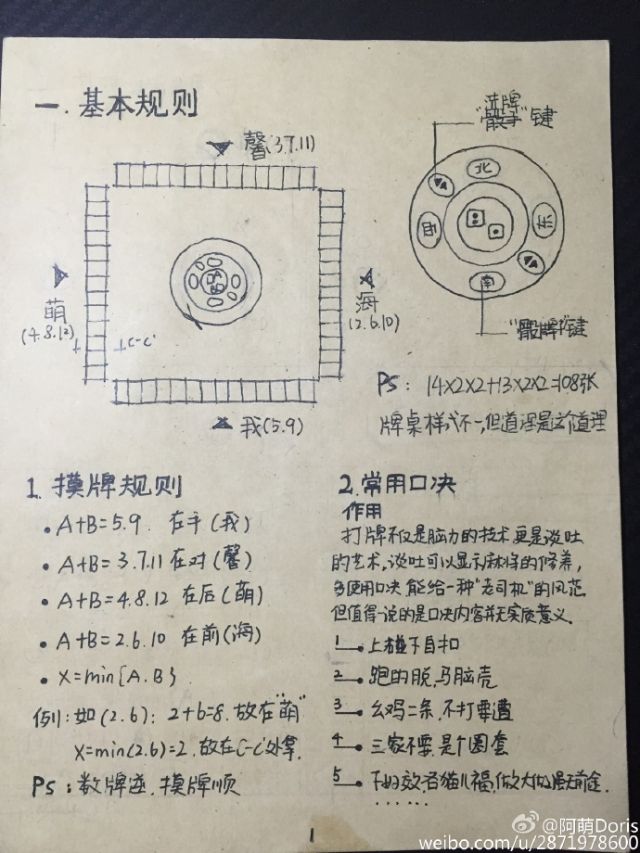 一. 基本规则
馨(3.7.11)
洗牌
"骰子"键
北
西
东
南
萌
(4.8.12)
海
(2.6.10)
C-C'
"骰牌"键
我(5.9)
PS: 14X2X2+13X2X2=108张
牌桌样式不一,但道理是这个道理
1. 摸牌规则
• A+B=5.9. 在手(我)
• A+B=3.7.11 在对(馨)
• A+B=4.8.12 在后(萌)
• A+B=2.6.10 在前(海)
• X=min{A.B}
例:如(2.6): 2+6=8. 放在"萌"
X=min(2.6)=2. 放在C-C'处拿.
PS: 数牌逆.摸牌顺
2.常用口决
作用
打牌不仅是脑力的技术,更是谈吐
的艺术,谈吐可以显示麻将的修养,
多使用口决 能给一种"老司机"的风范
但值得一说的是口决内容并无实质意义.
1 上碰下自扣
2 跑的脱,马脑壳
3 幺鸡二条,不打要遭
4 三家不要,是个圈套
5 福,做大做强
......
1
@阿萌Doris
weibo.com/u/2871978600